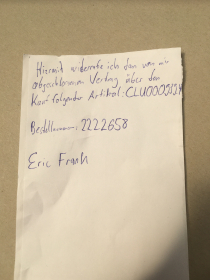 Hiermit widerrufe ich den von mir
abgeschlossenen Vertrag über den
Kauf folgender Artikel: CLU000
Bestellnummer: 2222658
Eric Frank